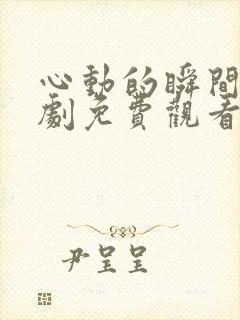 心動的瞬間
劇免費觀看
尹呈呈